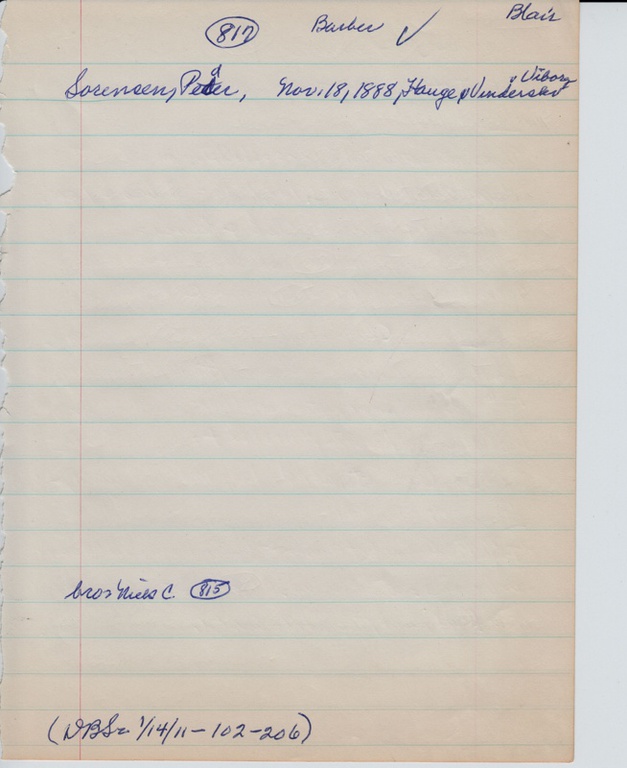 817 Barber ✓ Blair
Sorensen, Peder, Nov. 18, 1888, Hauge, Vinderslev, Viborg
bros Niels C. 815
(DBS- 1/14/11-102-206)